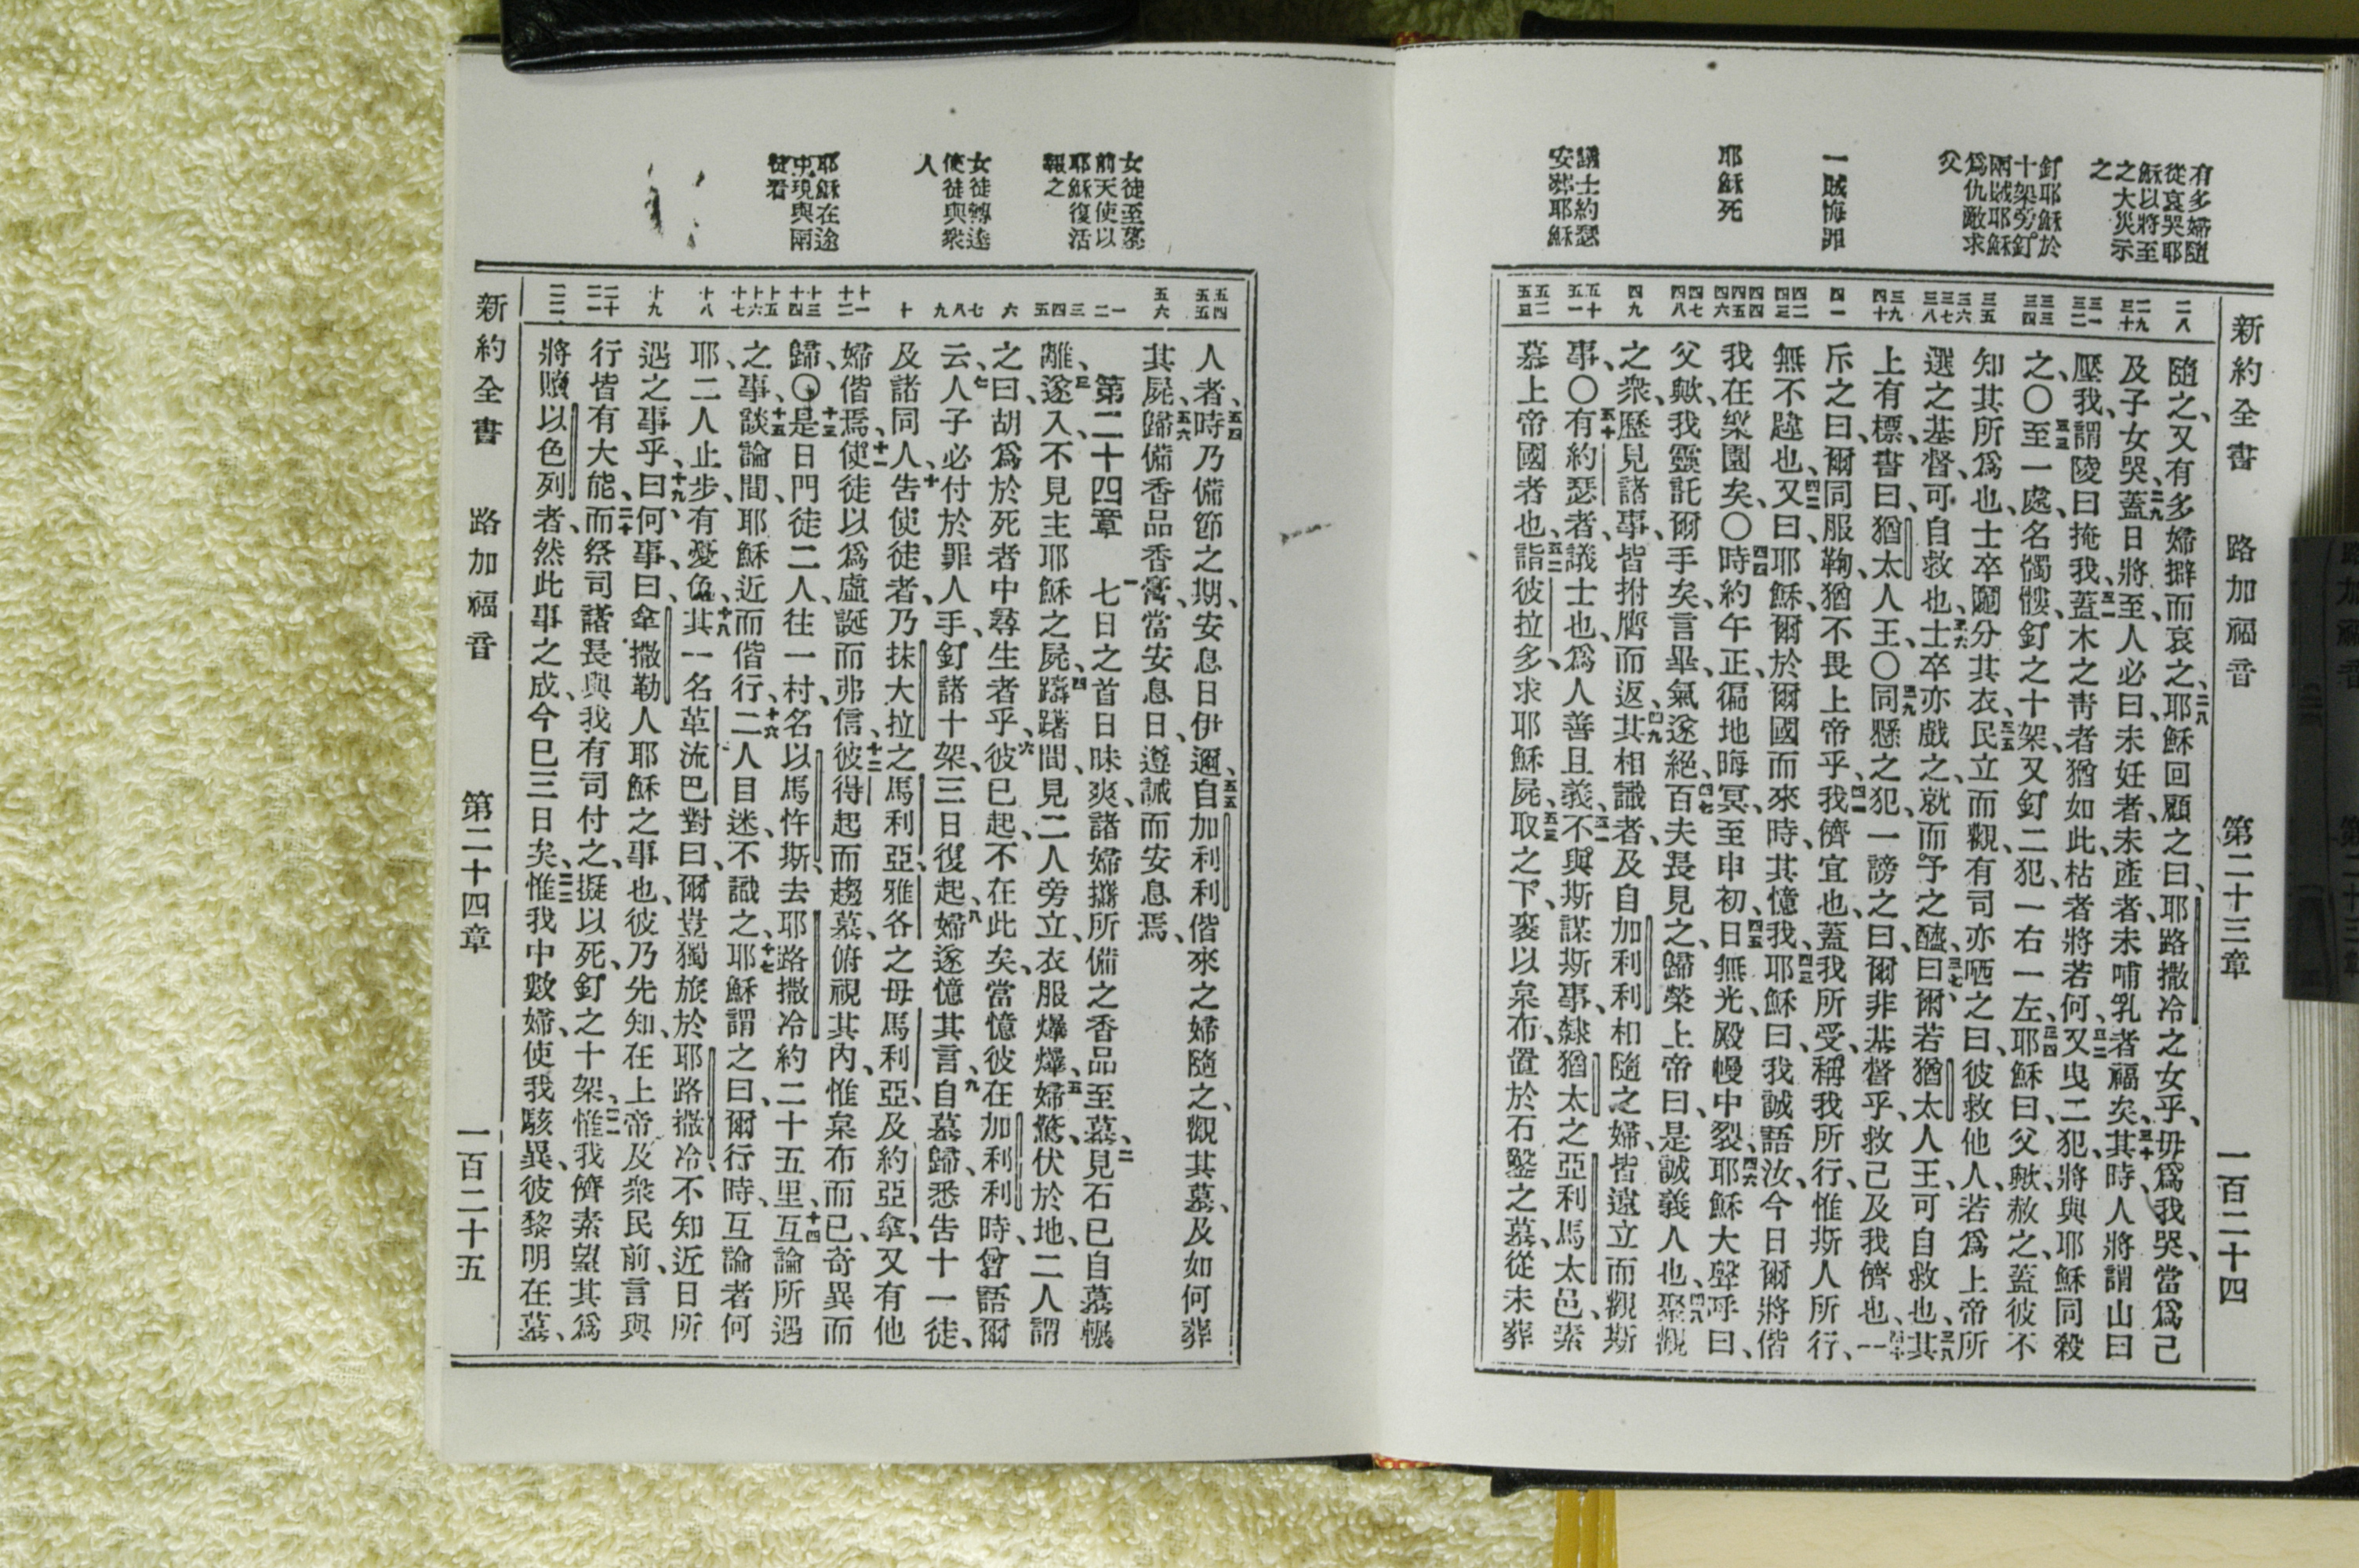 新約全書 路加福音 第二十三章 一百二十四
有多婦隨
從哀哭耶
穌以將至
之大災示
之
釘耶穌於
十架旁釘
兩賊耶穌
爲仇敵求
父
一賊悔罪
耶穌死
議士約瑟
安葬耶穌
二八
二九 三十
三一 三二
三三 三四
三五
三六 三七 三八
三九 四十
四一
四二 四三
四四 四五 四六
四七 四八
四九
五十 五一
五二 五三
隨之、又有多婦擗而哀之、二八耶穌回顧之曰、耶路撒冷之女乎、毋爲我哭、當爲己
及子女哭、二九蓋日將至、人必曰、未妊者、未產者、未哺乳者福矣、三十其時、人將謂山曰
壓我、謂陵曰掩我、三一蓋木之靑者猶如此、枯者將若何、三二又曳二犯、將與耶穌同殺
之、〇三三至一處、名髑髏、釘之十架、又釘二犯、一右一左、三四耶穌曰、父歟、赦之、蓋彼不
知其所爲也、士卒鬮分其衣、三五民立而觀、有司亦哂之曰、彼救他人、若爲上帝所
選之基督、可自救也、三六士卒亦戲之、就而予之醯、三七曰、爾若猶太人王、可自救也、三八其
上有標、書曰、猶太人王、〇三九同懸之犯、一謗之曰、爾非基督乎、救己及我儕也、四十一
斥之曰、爾同服鞫、猶不畏上帝乎、四一我儕宜也、蓋我所受、稱我所行、惟斯人所行、
無不韙也、四二又曰、耶穌、爾於爾國而來時、其憶我、四三耶穌曰、我誠語汝、今日爾將偕
我在樂園矣、〇四四時約午正、徧地晦冥、至申初、四五日無光、殿幔中裂、四六耶穌大聲呼曰、
父歟、我靈託爾手矣、言畢、氣遂絕、四七百夫長見之、歸榮上帝曰、是誠義人也、四八聚觀
之衆、歷見諸事、皆拊膺而返、四九其相識者、及自加利利相隨之婦、皆遠立而觀斯
事、〇五十有約瑟者、議士也、爲人善且義、五一不與斯謀斯事、隸猶太之亞利馬太邑、素
慕上帝國者也、五二詣彼拉多、求耶穌屍、五三取之下、裹以枲布、置於石鑿之墓、從未葬
女徒至墓
前天使以
耶穌復活
報之
女徒轉達
使徒與衆
人
耶穌在途
中現與兩
徒看
五四 五五
五六
一 二
三 四 五
六
七 八 九
十
十一 十二
十三 十四
十五 十六 十七
十八
十九
二十 二一
二二
人者、五四時乃備節之期、安息日伊邇、五五自加利利偕來之婦隨之、觀其墓、及如何葬
其屍、五六歸備香品香膏、當安息日、遵誡而安息焉、
第二十四章 一七日之首日昧爽、諸婦攜所備之香品至墓、二見石已自墓輾
離、三遂入、不見主耶穌之屍、四躊躇間、見二人旁立、衣服爗爗、五婦驚、伏於地、二人謂
之曰、胡爲於死者中尋生者乎、六彼已起、不在此矣、當憶彼在加利利時、曾語爾
云、七人子必付於罪人手、釘諸十架、三日復起、八婦遂憶其言、九自墓歸、悉告十一徒、
及諸同人、十告使徒者、乃抹大拉之馬利亞、雅各之母馬利亞、及約亞拿、又有他
婦偕焉、十一使徒以爲虛誕而弗信、十二彼得起而趨墓、俯視其內、惟枲布而已、奇異而
歸、〇十三是日門徒二人、往一村、名以馬忤斯、去耶路撒冷約二十五里、十四互論所遇
之事、十五談論間、耶穌近而偕行、十六二人目迷、不識之、十七耶穌謂之曰、爾行時、互論者何
耶、二人止步、有憂色、十八其一名革流巴對曰、爾豈獨旅於耶路撒冷、不知近日所
遇之事乎、十九曰、何事、曰、拿撒勒人耶穌之事也、彼乃先知、在上帝及衆民前、言與
行皆有大能、二十而祭司諸長與我有司付之、擬以死、釘之十架、二一惟我儕素望其爲
將贖以色列者、然此事之成、今已三日矣、二二惟我中數婦、使我駭異、彼黎明在墓、
新約全書 路加福音 第二十四章 一百二十五